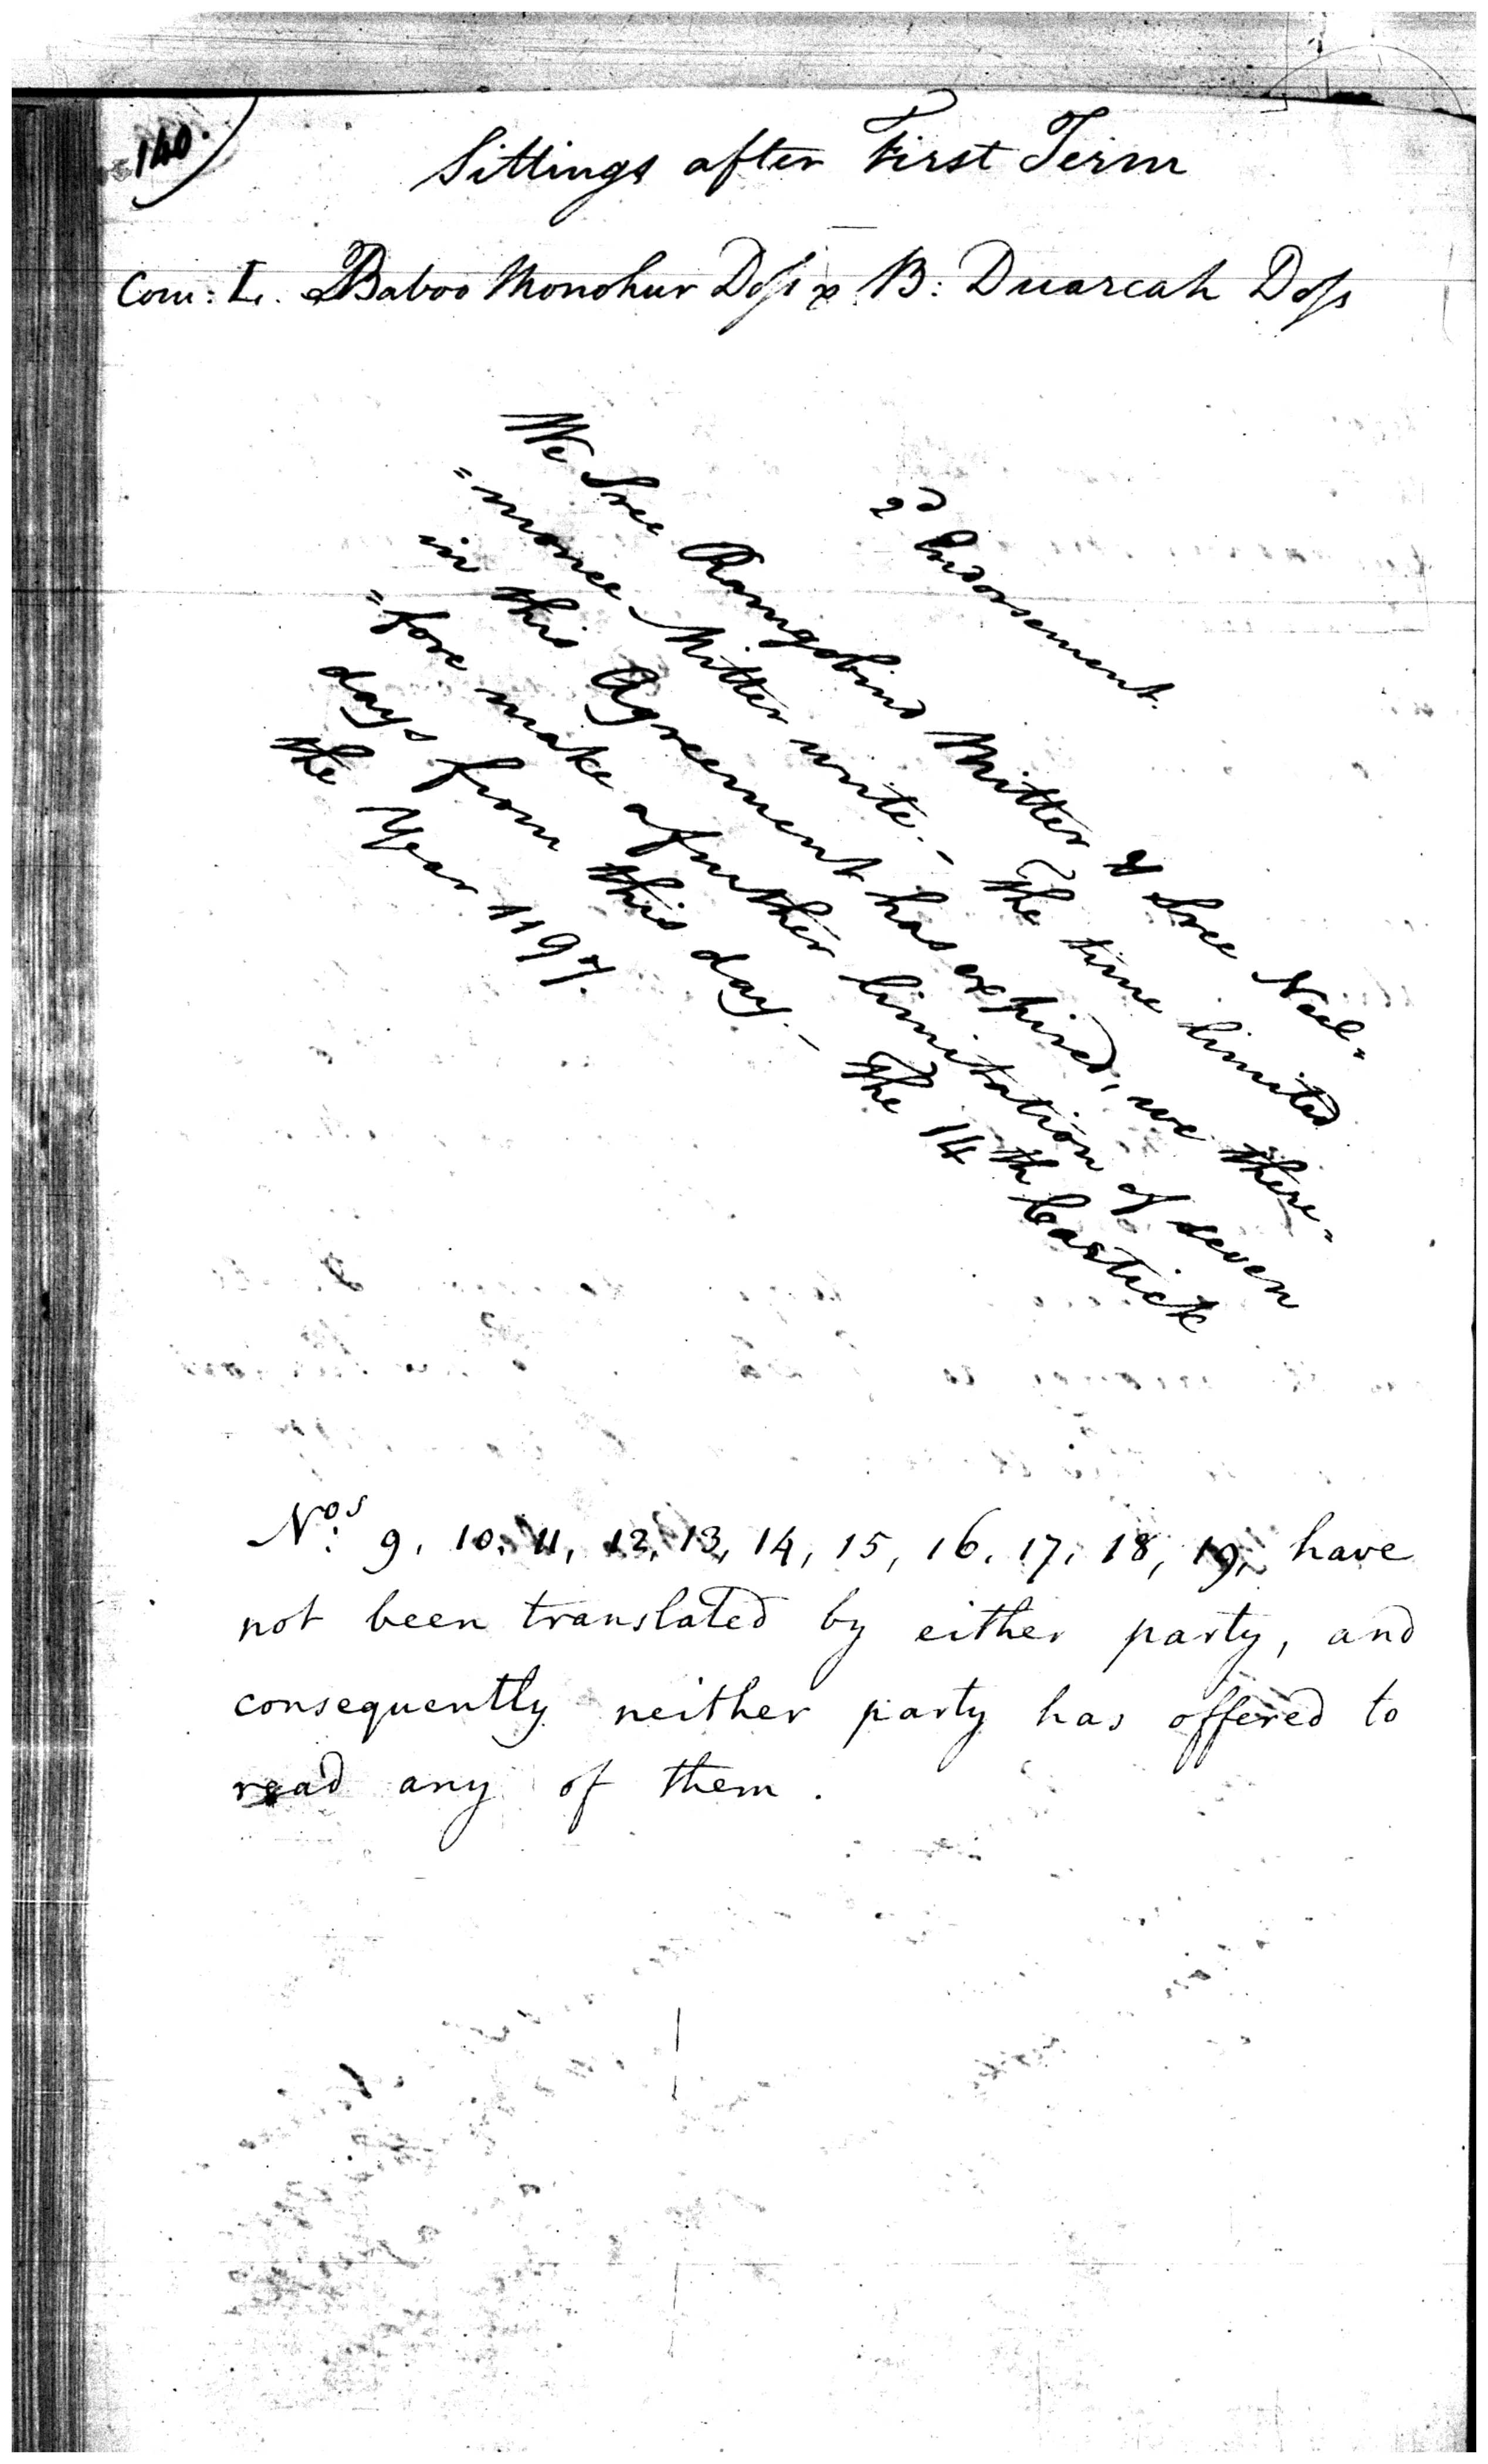 140.
Sittings after First Term
Com: L. Baboo Monohur Doss & B: Duarcah Doss
2d Endorsement.
We Sree Ramgobind Mitter & Sree Neel=
=monee Mitter write. – The time limited
in this Agreement has expired, we there=
=fore make a further limitation of seven
days from this day. – The 14th Cartick
the Year 1197.
Nos: 9, 10, 11, 12, 13, 14, 15, 16, 17, 18, 19, have
not been translated by either party, and
consequently neither party has offered to
read any of them.